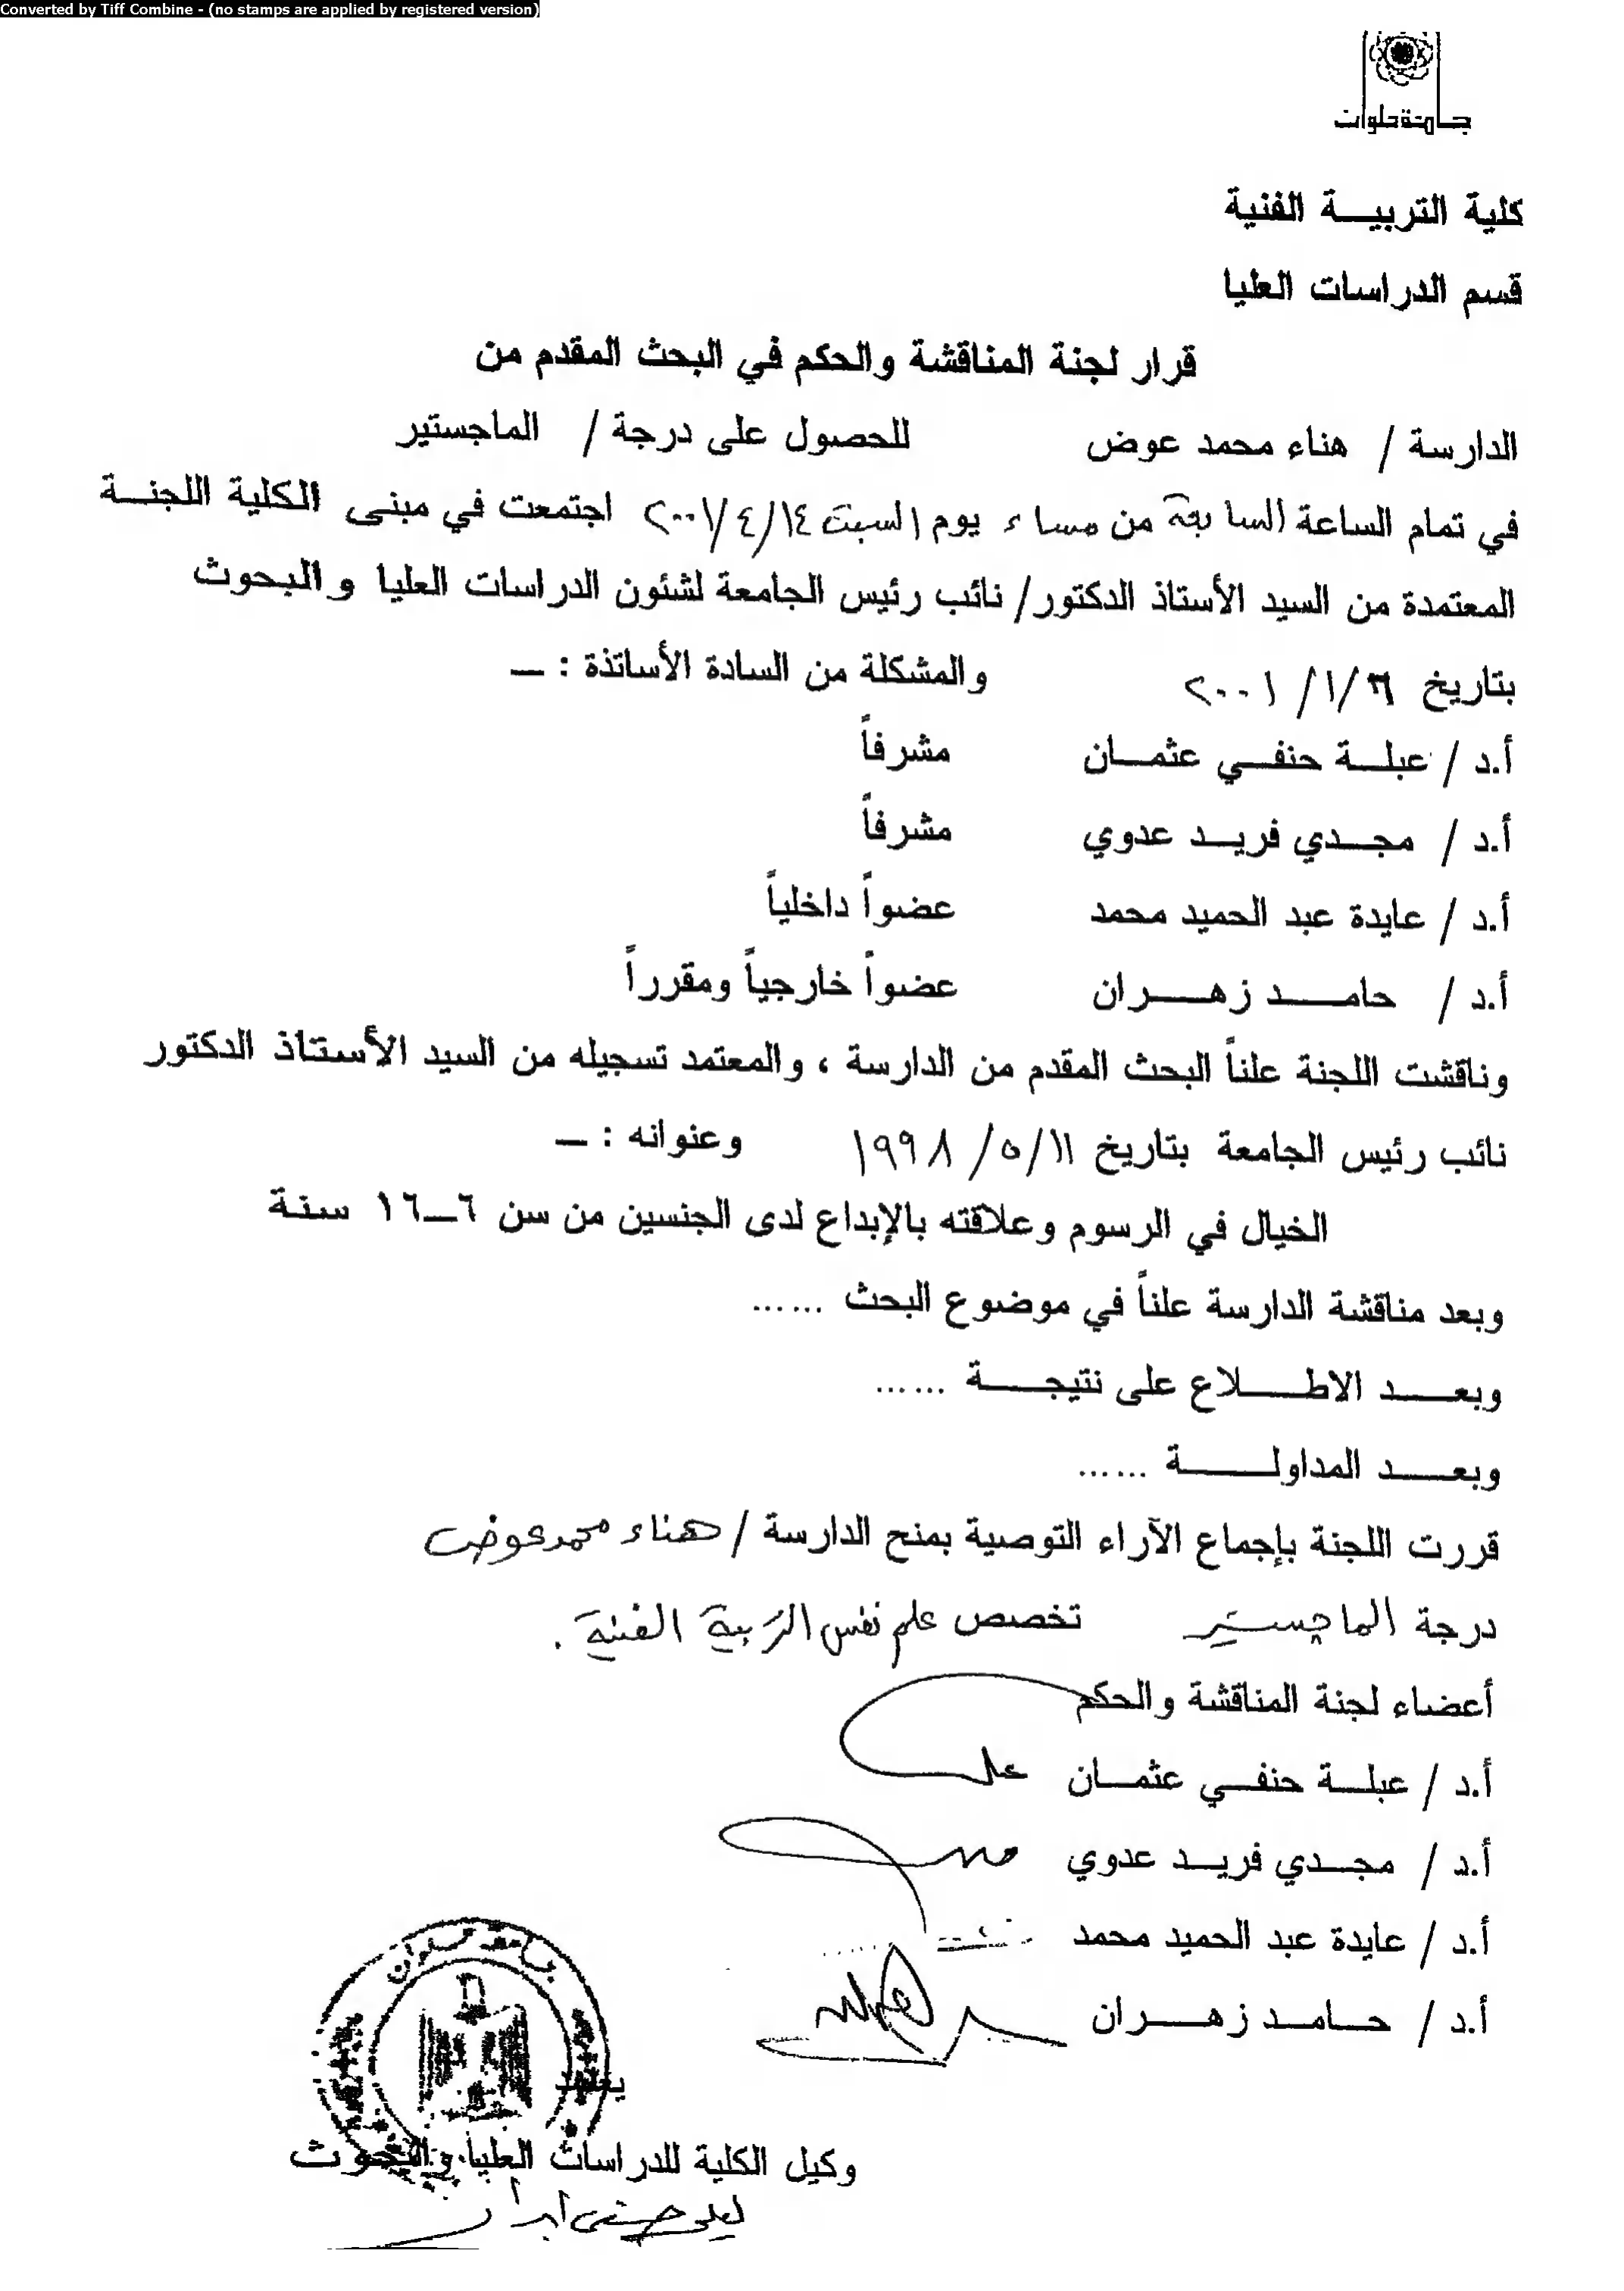 Converted by Tiff Combine - (no stamps are applied by registered version)
جامعة حلوان
كلية التربيـــة الفنية
قسم الدراسات العليا
قرار لجنة المناقشة والحكم في البحث المقدم من
الدارسة / هناء محمد عوض للحصول على درجة / الماجستير
في تمام الساعة السابعة من مساء يوم السبت ١٤/٤/٢٠٠١ اجتمعت في مبنى الكلية اللجنــة
المعتمدة من السيد الأستاذ الدكتور/ نائب رئيس الجامعة لشئون الدراسات العليا والبحوث
بتاريخ /١/٢٠٠١ والمشكلة من السادة الأساتذة : ــ
أ.د / عبلــة حنفــي عثمــان مشرفاً
أ.د / مجــدي فريــد عدوي مشرفاً
أ.د / عايدة عبد الحميد محمد عضواً داخلياً
أ.د / حامــــد زهــــران عضواً خارجياً ومقرراً
وناقشت اللجنة علناً البحث المقدم من الدارسة ، والمعتمد تسجيله من السيد الأستاذ الدكتور
نائب رئيس الجامعة بتاريخ ١١/٥/١٩٩٨ وعنوانه : ــ
الخيال في الرسوم وعلاقته بالإبداع لدى الجنسين من سن ٦ــ١٦ سنة
وبعد مناقشة الدارسة علناً في موضوع البحث ......
وبعــــد الاطــــلاع على نتيجــــة ......
وبعــــد المداولــــــة ......
قررت اللجنة بإجماع الآراء التوصية بمنح الدارسة / هناء محمد عوض
درجة الماجستير تخصص علم نفس التربية الفنية .
أعضاء لجنة المناقشة والحكم
أ.د / عبلــة حنفــي عثمــان
أ.د / مجــدي فريــد عدوي
أ.د / عايدة عبد الحميد محمد
أ.د / حـامــد زهــــران
جامعة حلوان
يعتمد
وكيل الكلية للدراسات العليا والبحوث